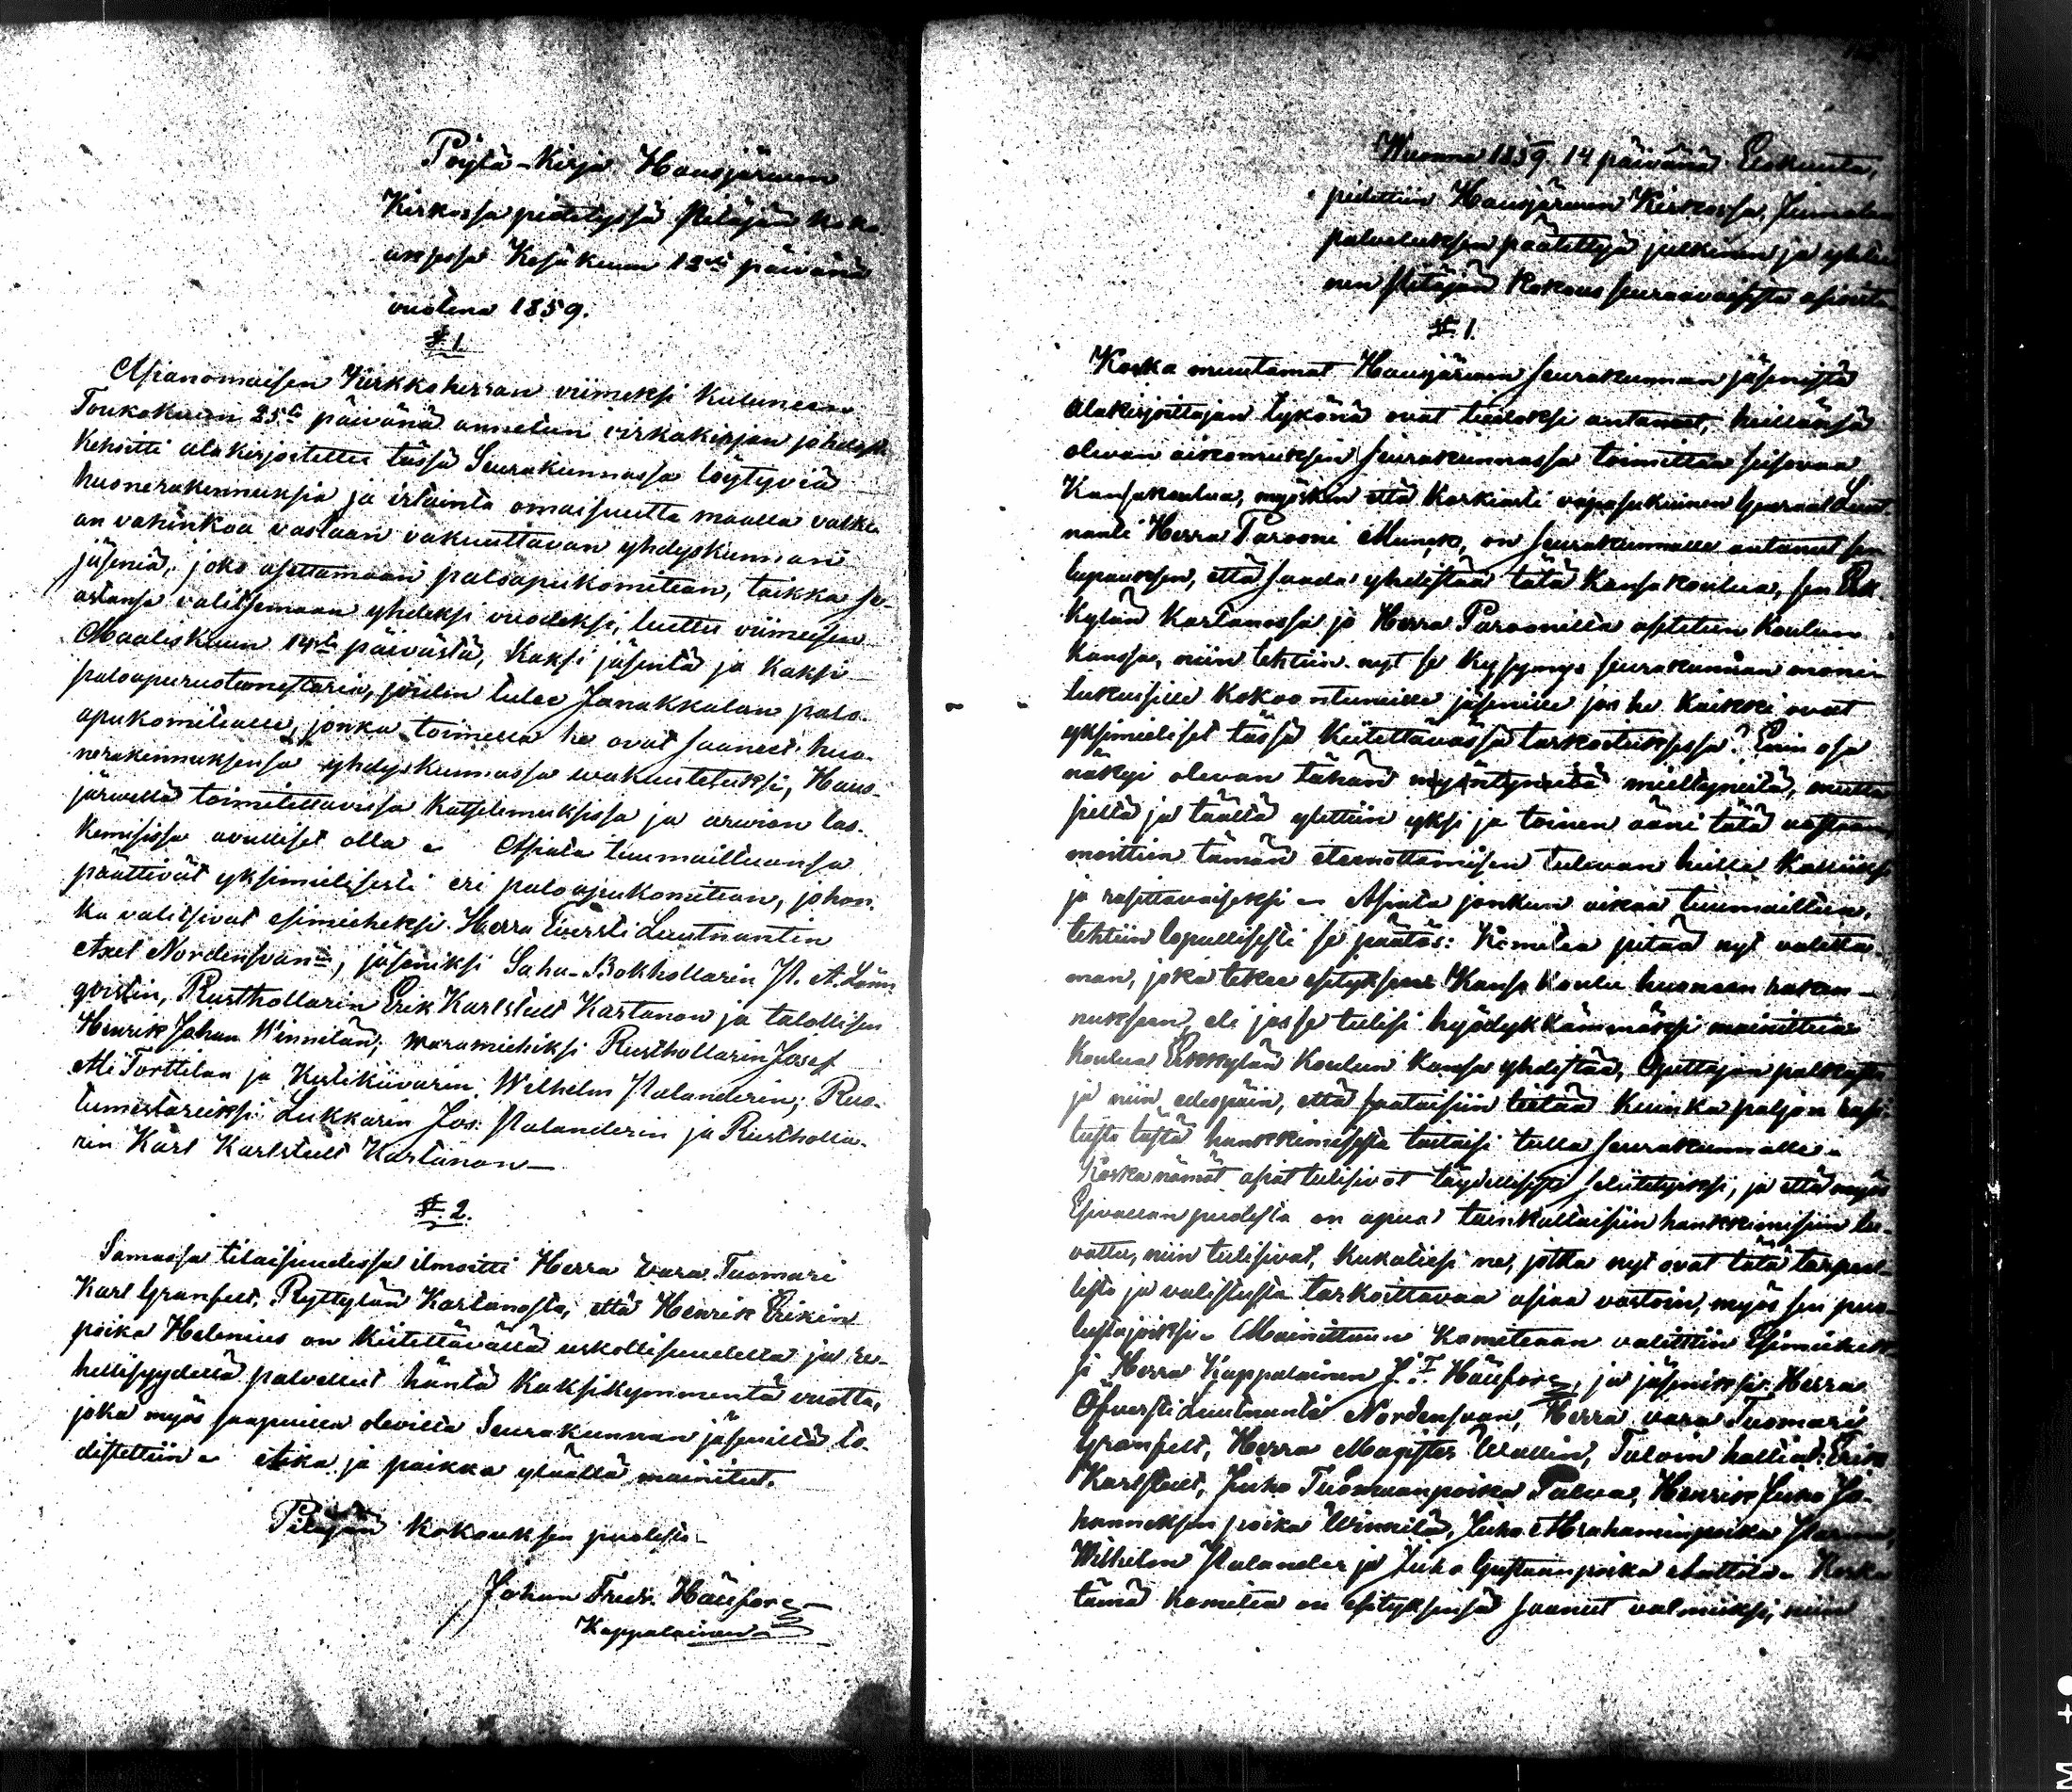 Pöytä-Kirja Hausjärwen
Kirkossa pidetyssä Pitäjän koko-
uksessa Kesäkuun 12ta päivänä
vuotena 1859.
§. 1.
Asianomaisen Kirkkoherran viimeksi kuluneen
Toukokuun 25ta päivänä annetun virkakirjan johdosta
kehoitti alakirjoitettu tässä Seurakunnassa löytyviä
huonerakennuksia ja irtainta omaisuutta maalla valke-
an vahinkoa vastaan vakuuttavan yhdyskunnan
jäseniä, joko asettamaan paloapukomitean, taikka se-
astansa valitsemaan yhdeksi vuodeksi, luettu viimeisen
Maaliskuun 14ta päivästä, kaksi jäsentä ja kaksi
paloapuruotumestaria, joiden tulee Janakkalan palo-
apukomiteassa, jonka toimella he ovat saaneet huo-
nerakennuksensa yhdyskunnassa wakuutetuksi, Haus-
järwellä toimitettavissa katselemuksissa ja arwion las-
kemisissa avulliset olla. Asiata tuumailtuansa
päättivät yksimielisesti eri paloapukomitean, johon-
ka valitsivat esimieheksi Herra Eversti Luutnantin
Axel Nordensvan, jäseniksi Saha-Bokhollarin A. Lönn-
qvistin, Rusthollarin Erik Karlstedt Kartanon ja talollisen
Henrik Johan Winnilän; waramiehiksi Rusthollarin Josef
Torttilan ja Wilhelm Palanderin; Ruo-
tumestareiksi Lukkarin Jos. Palanderin ja Rustholla-
rin Karl Karlstedt Kartanon—
§. 2.
Samassa tilaisuudessa ilmoitti Herra Wara Tuomari
Karl Granfelt, Ryttylän Kartanosta, että Henrik Erikin
poika Helenius on kiitettävällä uskollisuudella ja re-
hellisyydellä palvellut häntä kaksikymmentä vuotta,
joka myös saapuilla olevilta Seurakunnan jäseniltä to-
distettiin. Aika ja paikka ylläällä mainitut.
Pitäjän kokouksen puolesta
Johan Fredr. Häuforg
Kappalainen
Wuonna 1859 14 päivänä Elokuuta,
pidettiin Hausjärwen Kirkossa, Jumalan
palveluksen päätettyä julkinen ja yhtei-
nen Pitäjän Kokous seuraavaisista asioista
§. 1.
Koska muutamat Hausjärwen seurakunnan jäsenistä
alakirjoittajan tykönä ovat tiedoksi antaneet, heillänsä
olevan aikomuksen seurakunnassa toimittaa seisovaa
Kansakoulua, myöskin että korkiasti vapasukuinen General Luut-
nanti Herra Parooni Munck, on seurakunnalle antanut sen
lupauksen, että saada yhdistää tätä Kansakoulua, sen Erk-
kylän Kartanossa jo Herra Paroonilta asetetun Koulun
kanssa, niin tehtiin nyt se kysymys seurakunnan monin
lukuisille kokoontuneille jäsenille jos he kaikki ovat
yksimieliset tässä kiitettävässä tarkoituksessa? Enin osa
näkyi olevan tähän myöntyneitä mieltyneitä, mutta
siellä ja täällä ylettiin yksi ja toinen ääni tätä vastaan
moittien tämän eteenottamisen tulevan heille kalliiksi
ja rasittavaiseksi. Asiata jonkun aikaa tuumailtua,
tehtiin lopullisesti se päätös: Komitea pitää nyt valitta-
man, joka tekee esityksensä Kansa Koulu huoneen raken-
nukseen, eli jos se tulisi hyödykkäämmäksi mainittua
Koulua Erkkylän Koulun kanssa yhdistää, Opettajan palkasta
ja niin edespäin, että saataisiin tietää kuinka paljon rasi-
tusta tästä hankkimisesta taitaisi tulla seurakunnalle.
Koska nämät asiat tulisivat täydellisesti selitetyiksi, ja että myös
Esivallan puolesta on apua tämkaltaisiin hankkimisiin lu-
vattu, niin tulisivat, kukaties ne, jotka nyt ovat tätä tarpeel-
lista ja valistusta tarkoittavaa asiaa vastoin, myös sen puo-
lustajoiksi. Mainittuun Komiteaan valittiin Esimiehek-
si Herra Kappalainen J. F. Häuforg, ja jäseniksi Herra
Öfversti Luutnanti Nordensvan, Herra vara Tuomari
Granfelt, Herra Magister Wallin, Talon haltiat: Erik
Karlstedt, Juho Tuomaanpoika Palva, Henrik Juho Jo-
hanneksen poika Winnilä, Juho Abrahaminpoika
Wilhelm Palander ja Juho Gustaanpoika Anttila. Koska
tämä komitea on esityksensä saanut valmiiksi, niin